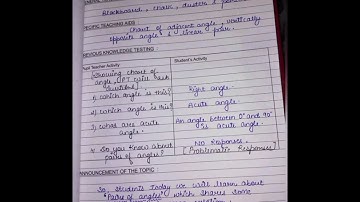 Blackboard, chalk, duster &
SPECIFIC TEACHING AIDS:
Chart of adjacent angle, vertically
opposite angle & linear pair.
PREVIOUS KNOWLEDGE TESTING:
Pupil Teacher Activity
Student's Activity
(Showing chart of
angle, PT will ask
questions)
1) Which angle is this?
Right angle.
2) Which angle is this?
Acute angle.
3) What are acute
angle.
An angle between 0° and 90°
is acute angle.
4) So, you know about
pairs of angles?
No Responses.
[Problematic Responses]
ANNOUNCEMENT OF THE TOPIC:
So, students today we will learn about
"Pairs of angles" which shares some